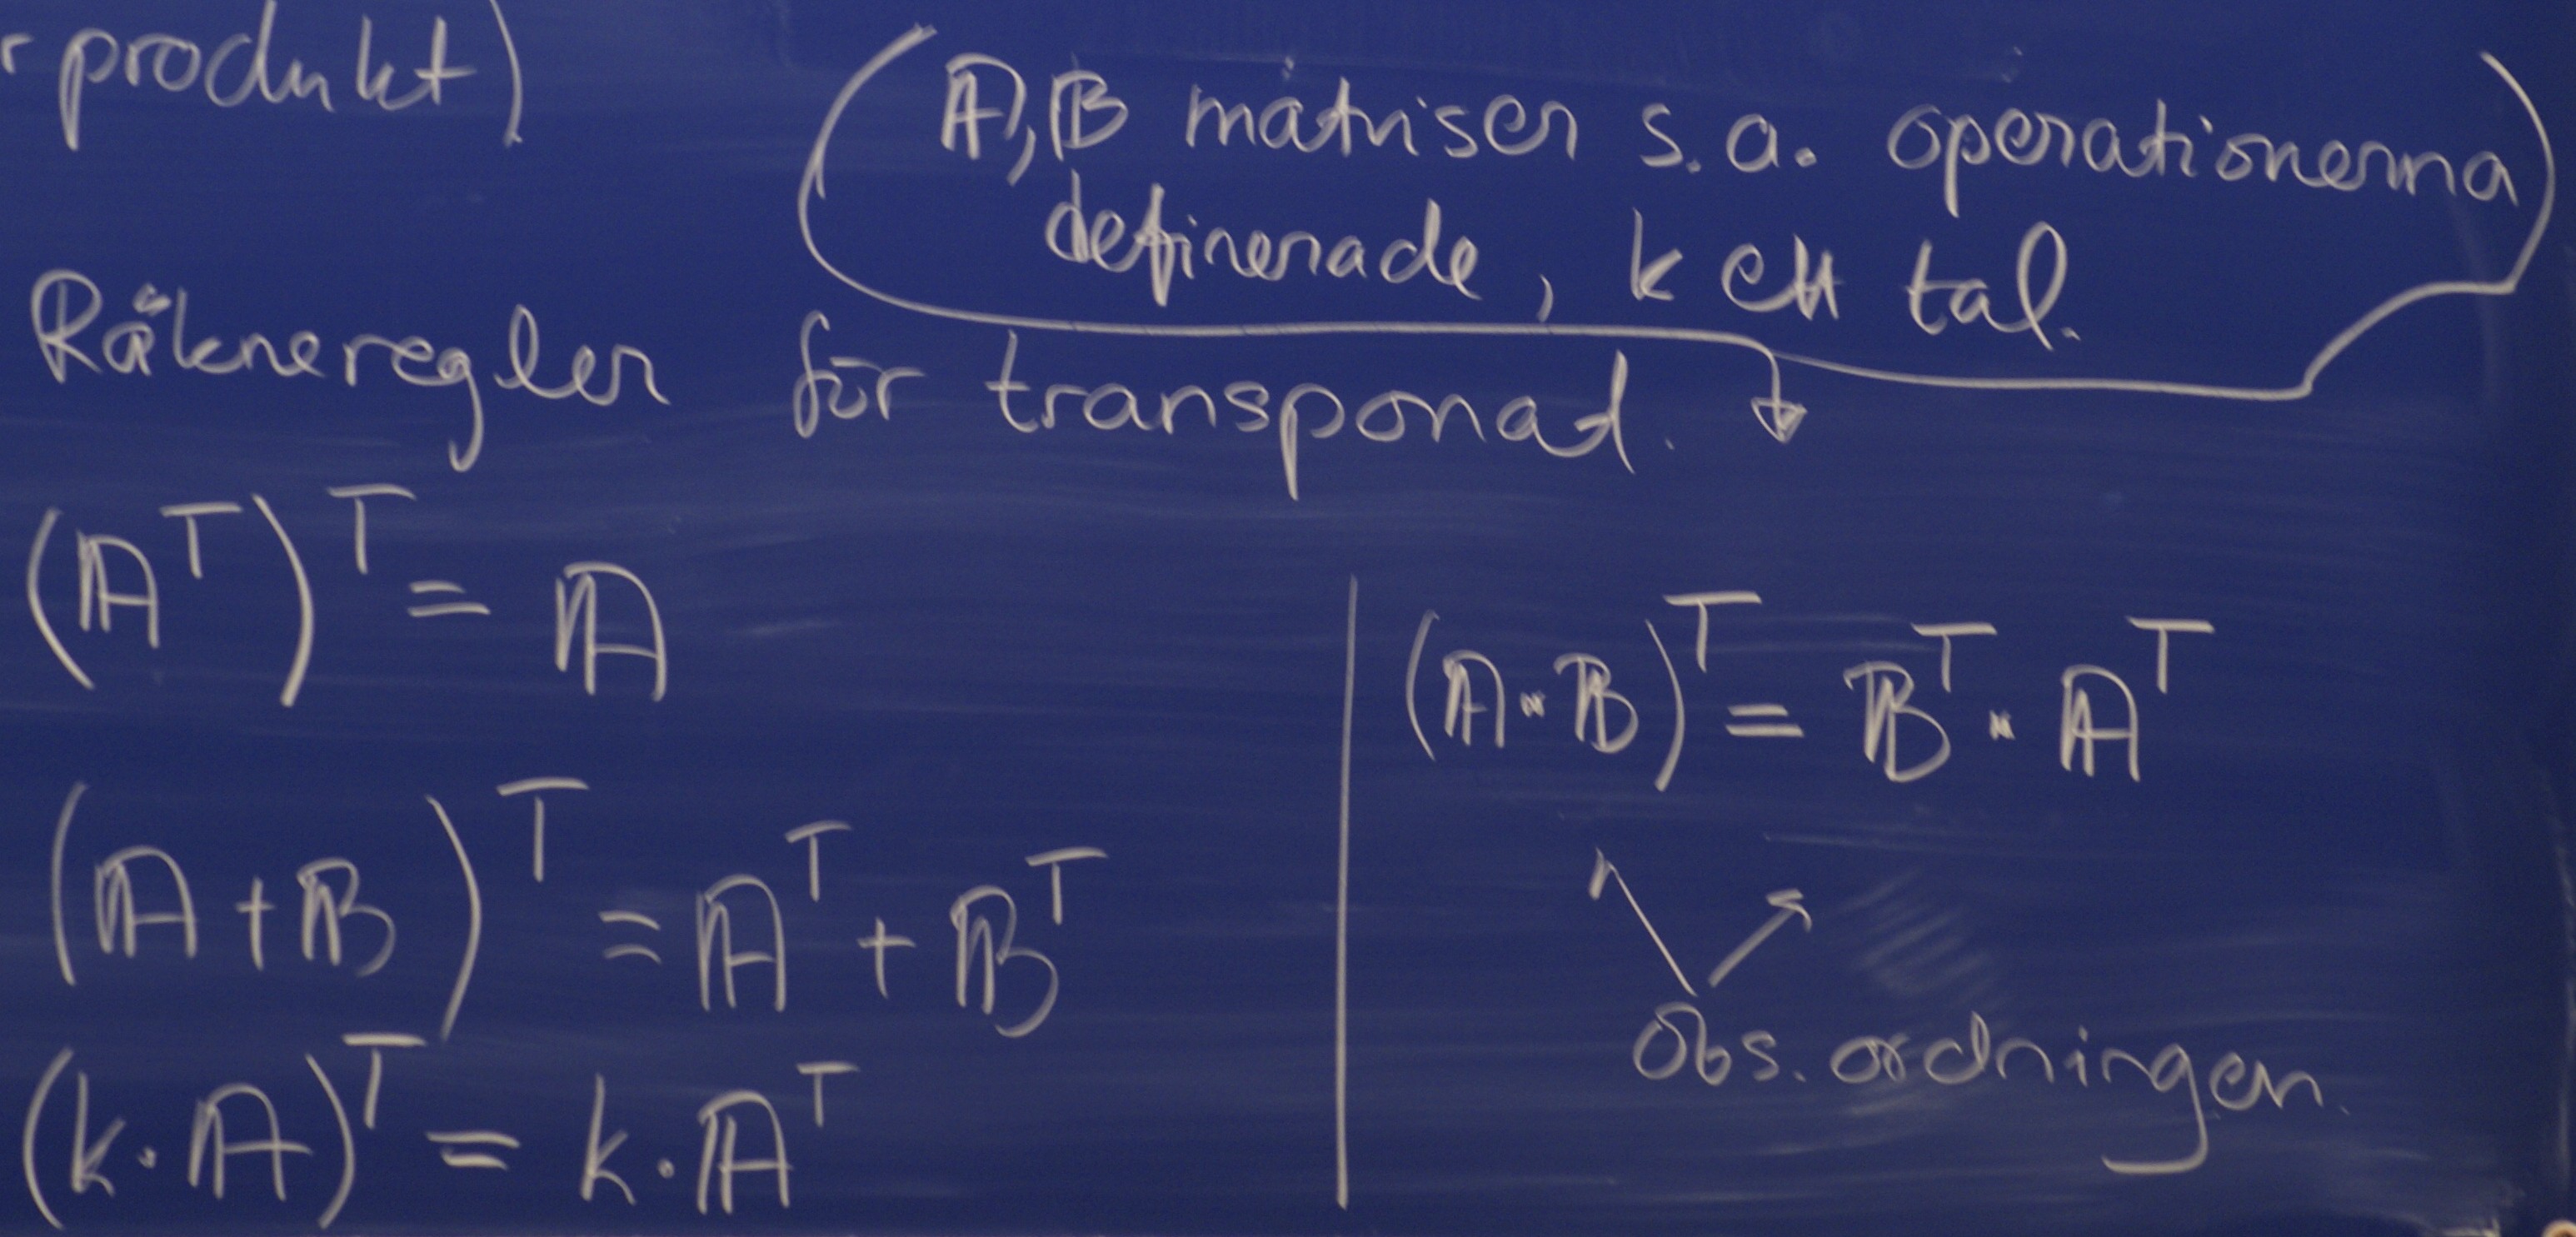 r produkt)
(A, B matriser s.a. operationerna
definerade, k ett tal.)
Räkneregler för transponat.
(Aᵀ)ᵀ = A
(A + B)ᵀ = Aᵀ + Bᵀ
(k · A)ᵀ = k · Aᵀ
(A · B)ᵀ = Bᵀ · Aᵀ
Obs. ordningen.